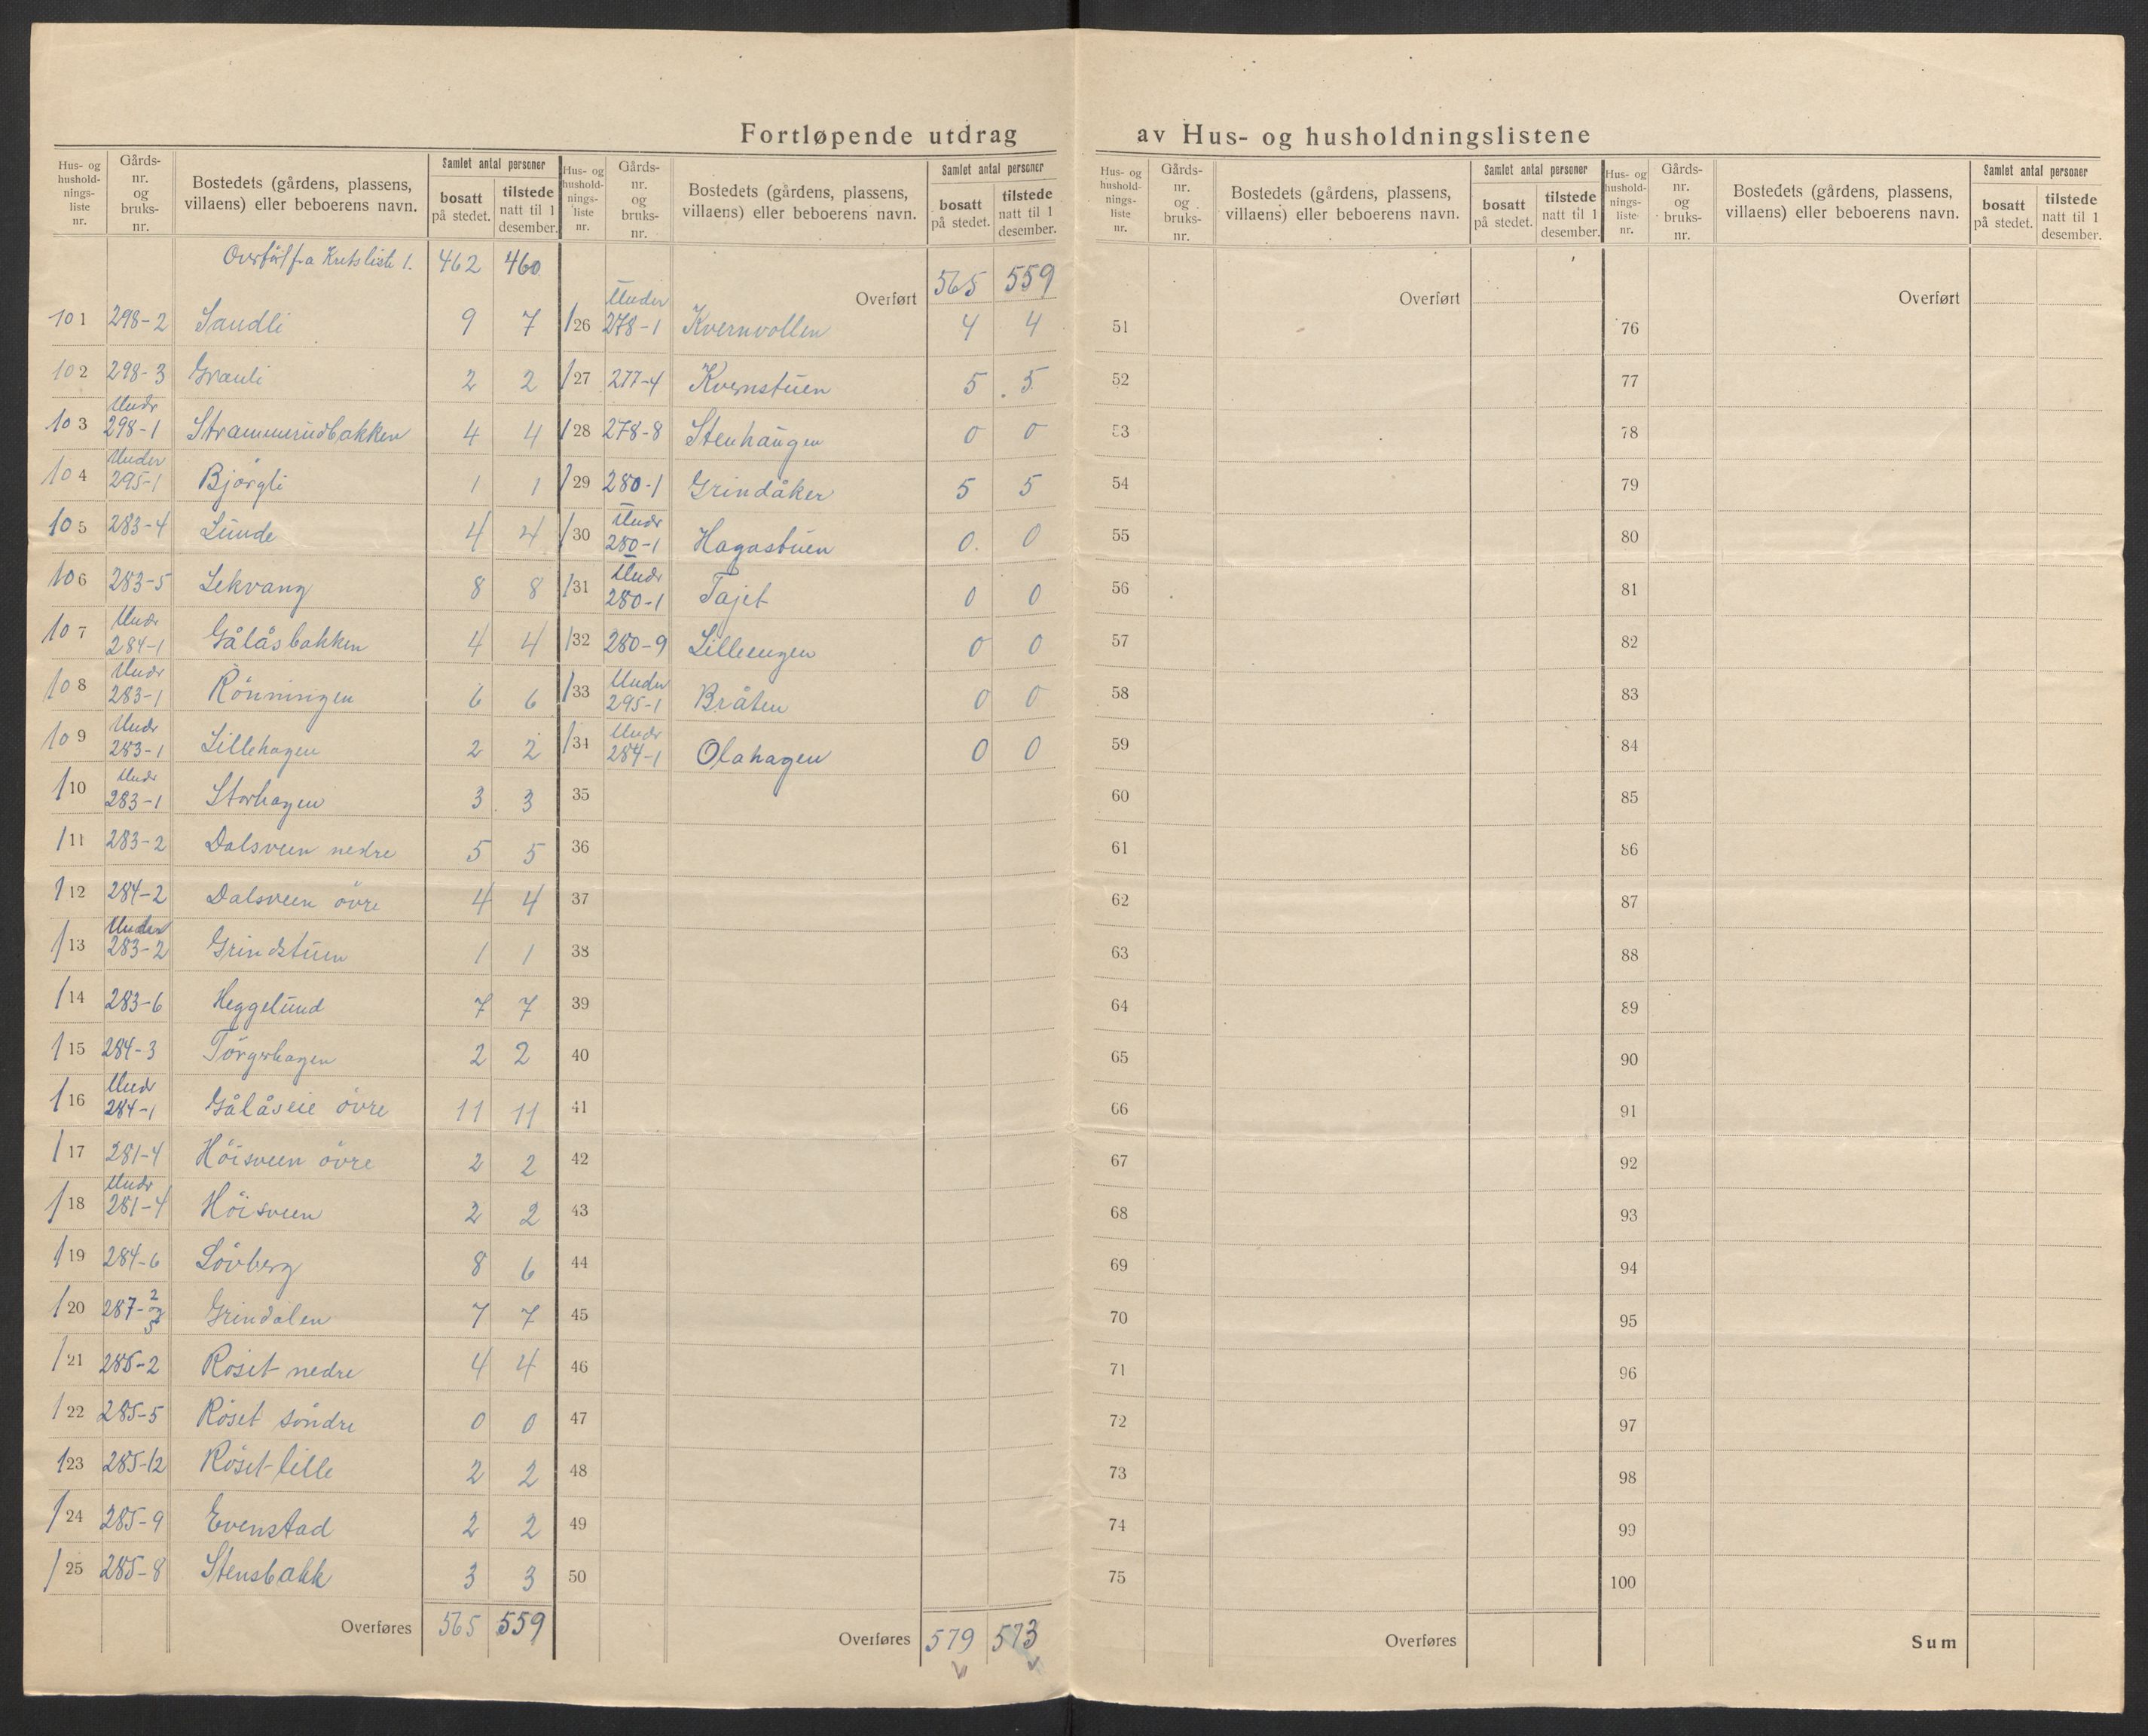 Fortløpende utdrag av Hus- og husholdningslistene
Hus- og hushold-nings-liste nr. | Gårds-nr. og bruks-nr. | Bostedets (gårdens, plassens, villaens) eller beboerens navn. | Samlet antal personer | bosatt på stedet. | tilstede natt til 1 desember.
Overført fra Kretsliste 1. 462 460
101 298-2 Sandli 9 7
102 298-3 Granli 2 2
103 Undr 298-1 Strammerudbakken 4 4
104 Under 295-1 Bjørgli 1 1
105 283-4 Lunde 4 4
106 283-5 Lekvang 8 8
107 Undr 284-1 Gålåsbakken 4 4
108 Undr 283-1 Rönningen 6 6
109 Undr 283-1 Lillehagen 2 2
110 Undr 283-1 Storhagen 3 3
111 283-2 Dalsveen nedre 5 5
112 284-2 Dalsveen övre 4 4
113 Under 283-2 Grindstuen 1 1
114 283-6 Heggelund 7 7
115 284-3 Törgerhagen 2 2
116 Undr 284-1 Gålåseie övre 11 11
117 281-4 Höisveen övre 2 2
118 Undr 281-4 Höisveen 2 2
119 284-6 Lövberg 8 6
120 287-2 og 3 Grindalen 7 7
121 285-2 Röset nedre 4 4
122 285-5 Röset söndre 0 0
123 285-12 Röset lille 2 2
124 285-9 Evenstad 2 2
125 285-8 Stensbakk 3 3
Overføres 565 559
Hus- og hushold-nings-liste nr. | Gårds-nr. og bruks-nr. | Bostedets (gårdens, plassens, villaens) eller beboerens navn. | Samlet antal personer | bosatt på stedet. | tilstede natt til 1 desember.
Overført 565 559
126 Under 278-1 Kvernvollen 4 4
127 277-4 Kvernstuen 5 5
128 278-8 Stenhaugen 0 0
129 280-1 Grindåker 5 5
130 Undr 280-1 Hagastuen 0 0
131 Undr 280-1 Tajet 0 0
132 280-9 Lilleengen 0 0
133 Under 295-1 Bråten 0 0
134 Undr 284-1 Olahagen 0 0
35
36
37
38
39
40
41
42
43
44
45
46
47
48
49
50
Overføres 579 573
Hus- og hushold-nings-liste nr. | Gårds-nr. og bruks-nr. | Bostedets (gårdens, plassens, villaens) eller beboerens navn. | Samlet antal personer | bosatt på stedet. | tilstede natt til 1 desember.
Overført
51
52
53
54
55
56
57
58
59
60
61
62
63
64
65
66
67
68
69
70
71
72
73
74
75
Overføres
Hus- og hushold-nings-liste nr. | Gårds-nr. og bruks-nr. | Bostedets (gårdens, plassens, villaens) eller beboerens navn. | Samlet antal personer | bosatt på stedet. | tilstede natt til 1 desember.
Overført
76
77
78
79
80
81
82
83
84
85
86
87
88
89
90
91
92
93
94
95
96
97
98
99
100
Sum